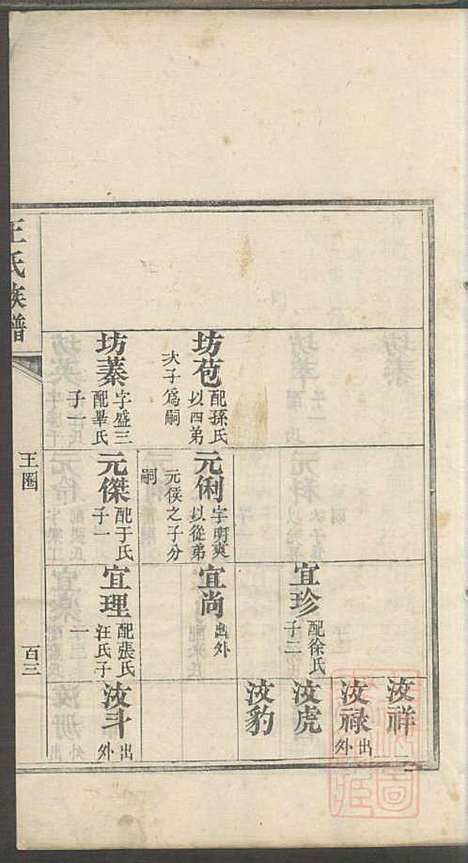 汝祥
汝禄 出外
汝虎
汝豹
宜珍 配徐氏子二
坊苞 配孫氏以四弟次子爲嗣
元俐 字明爽以從弟元俟之子分嗣
宜尚 出外
坊蓁 字盛三配畢氏子一
元傑 配于氏子一
宜理 配張氏汪氏子一
汝斗 出外
王氏族譜
王圈
百三